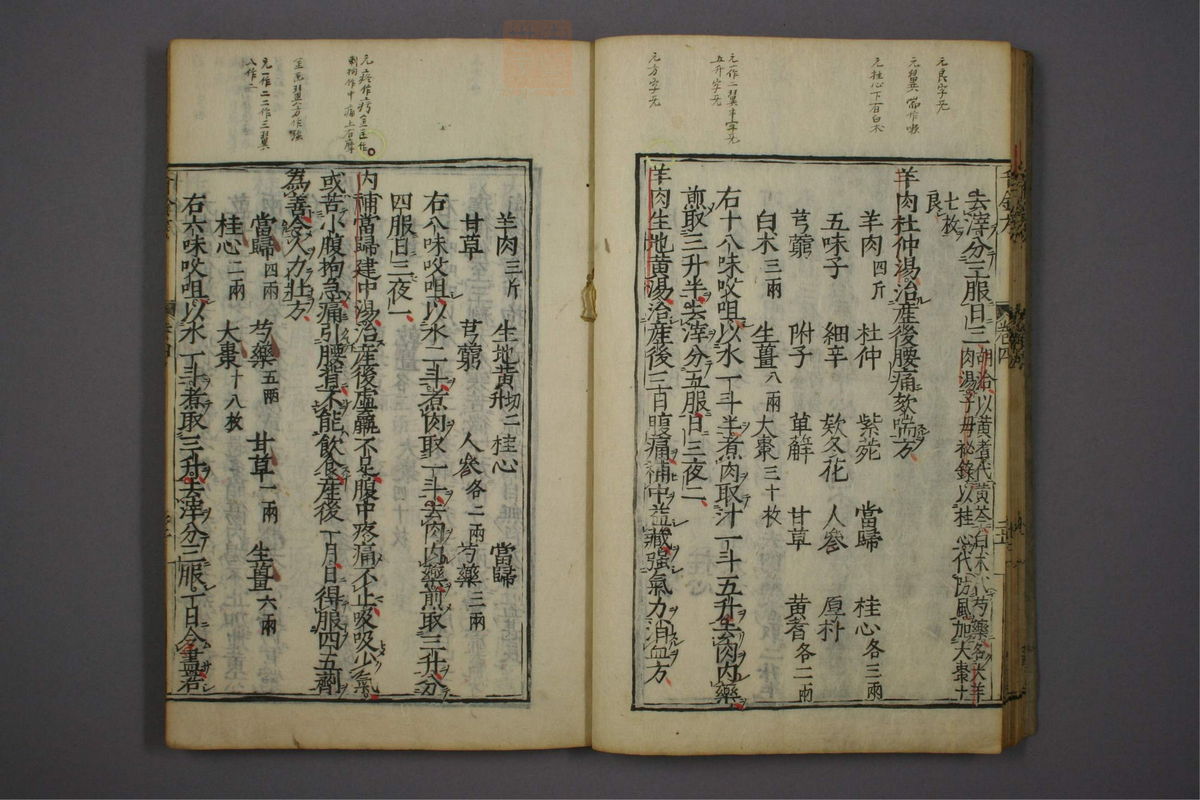 元良字无
元翼當作嗽
元桂心下有白朮
元一作二翼半字无
五升字无
元方字无
去滓分三服日三 胡洽以黃耆代黃芩白朮代芍藥名大羊
肉湯子母秘錄以桂心代防風加大棗十
七枚
良
羊肉杜仲湯治産後腰痛欬喘方
羊肉四斤 杜仲 紫菀 當歸 桂心各三兩
五味子 細辛 欵冬花 人參 厚朴
芎藭 附子 萆解 甘草 黃耆各二兩
白朮三兩 生薑八兩 大棗三十枚
右十八味㕮咀以水一斗半煮肉取汁一斗五升去肉内藥
煎取三升半去滓分五服日三夜二
羊肉生地黃湯治産後三日腹痛補中益藏強氣力消血方
卷四
元疼作㽲金匱作
刺拘作中痛上有摩
金匱翼六方作強
元一作二二作三翼
八作二
羊肉三斤 生地黃切二升 桂心 當歸
甘草 芎藭 人參各二兩 芍藥三兩
右八味㕮咀以水二斗煮肉取一斗去肉内藥煎取三升分
四服日三夜一
内補當歸建中湯治産後虛羸不足腹中疼痛不止吸吸少氣
或苦小腹拘急痛引腰背不能飲食産後一月日得服四五劑
為善令人力壯方
當歸四兩 芍藥五兩 甘草一兩 生薑六兩
桂心二兩 大棗十八枚
右六味㕮咀以水一斗煮取三升去滓分三服一日令盡若